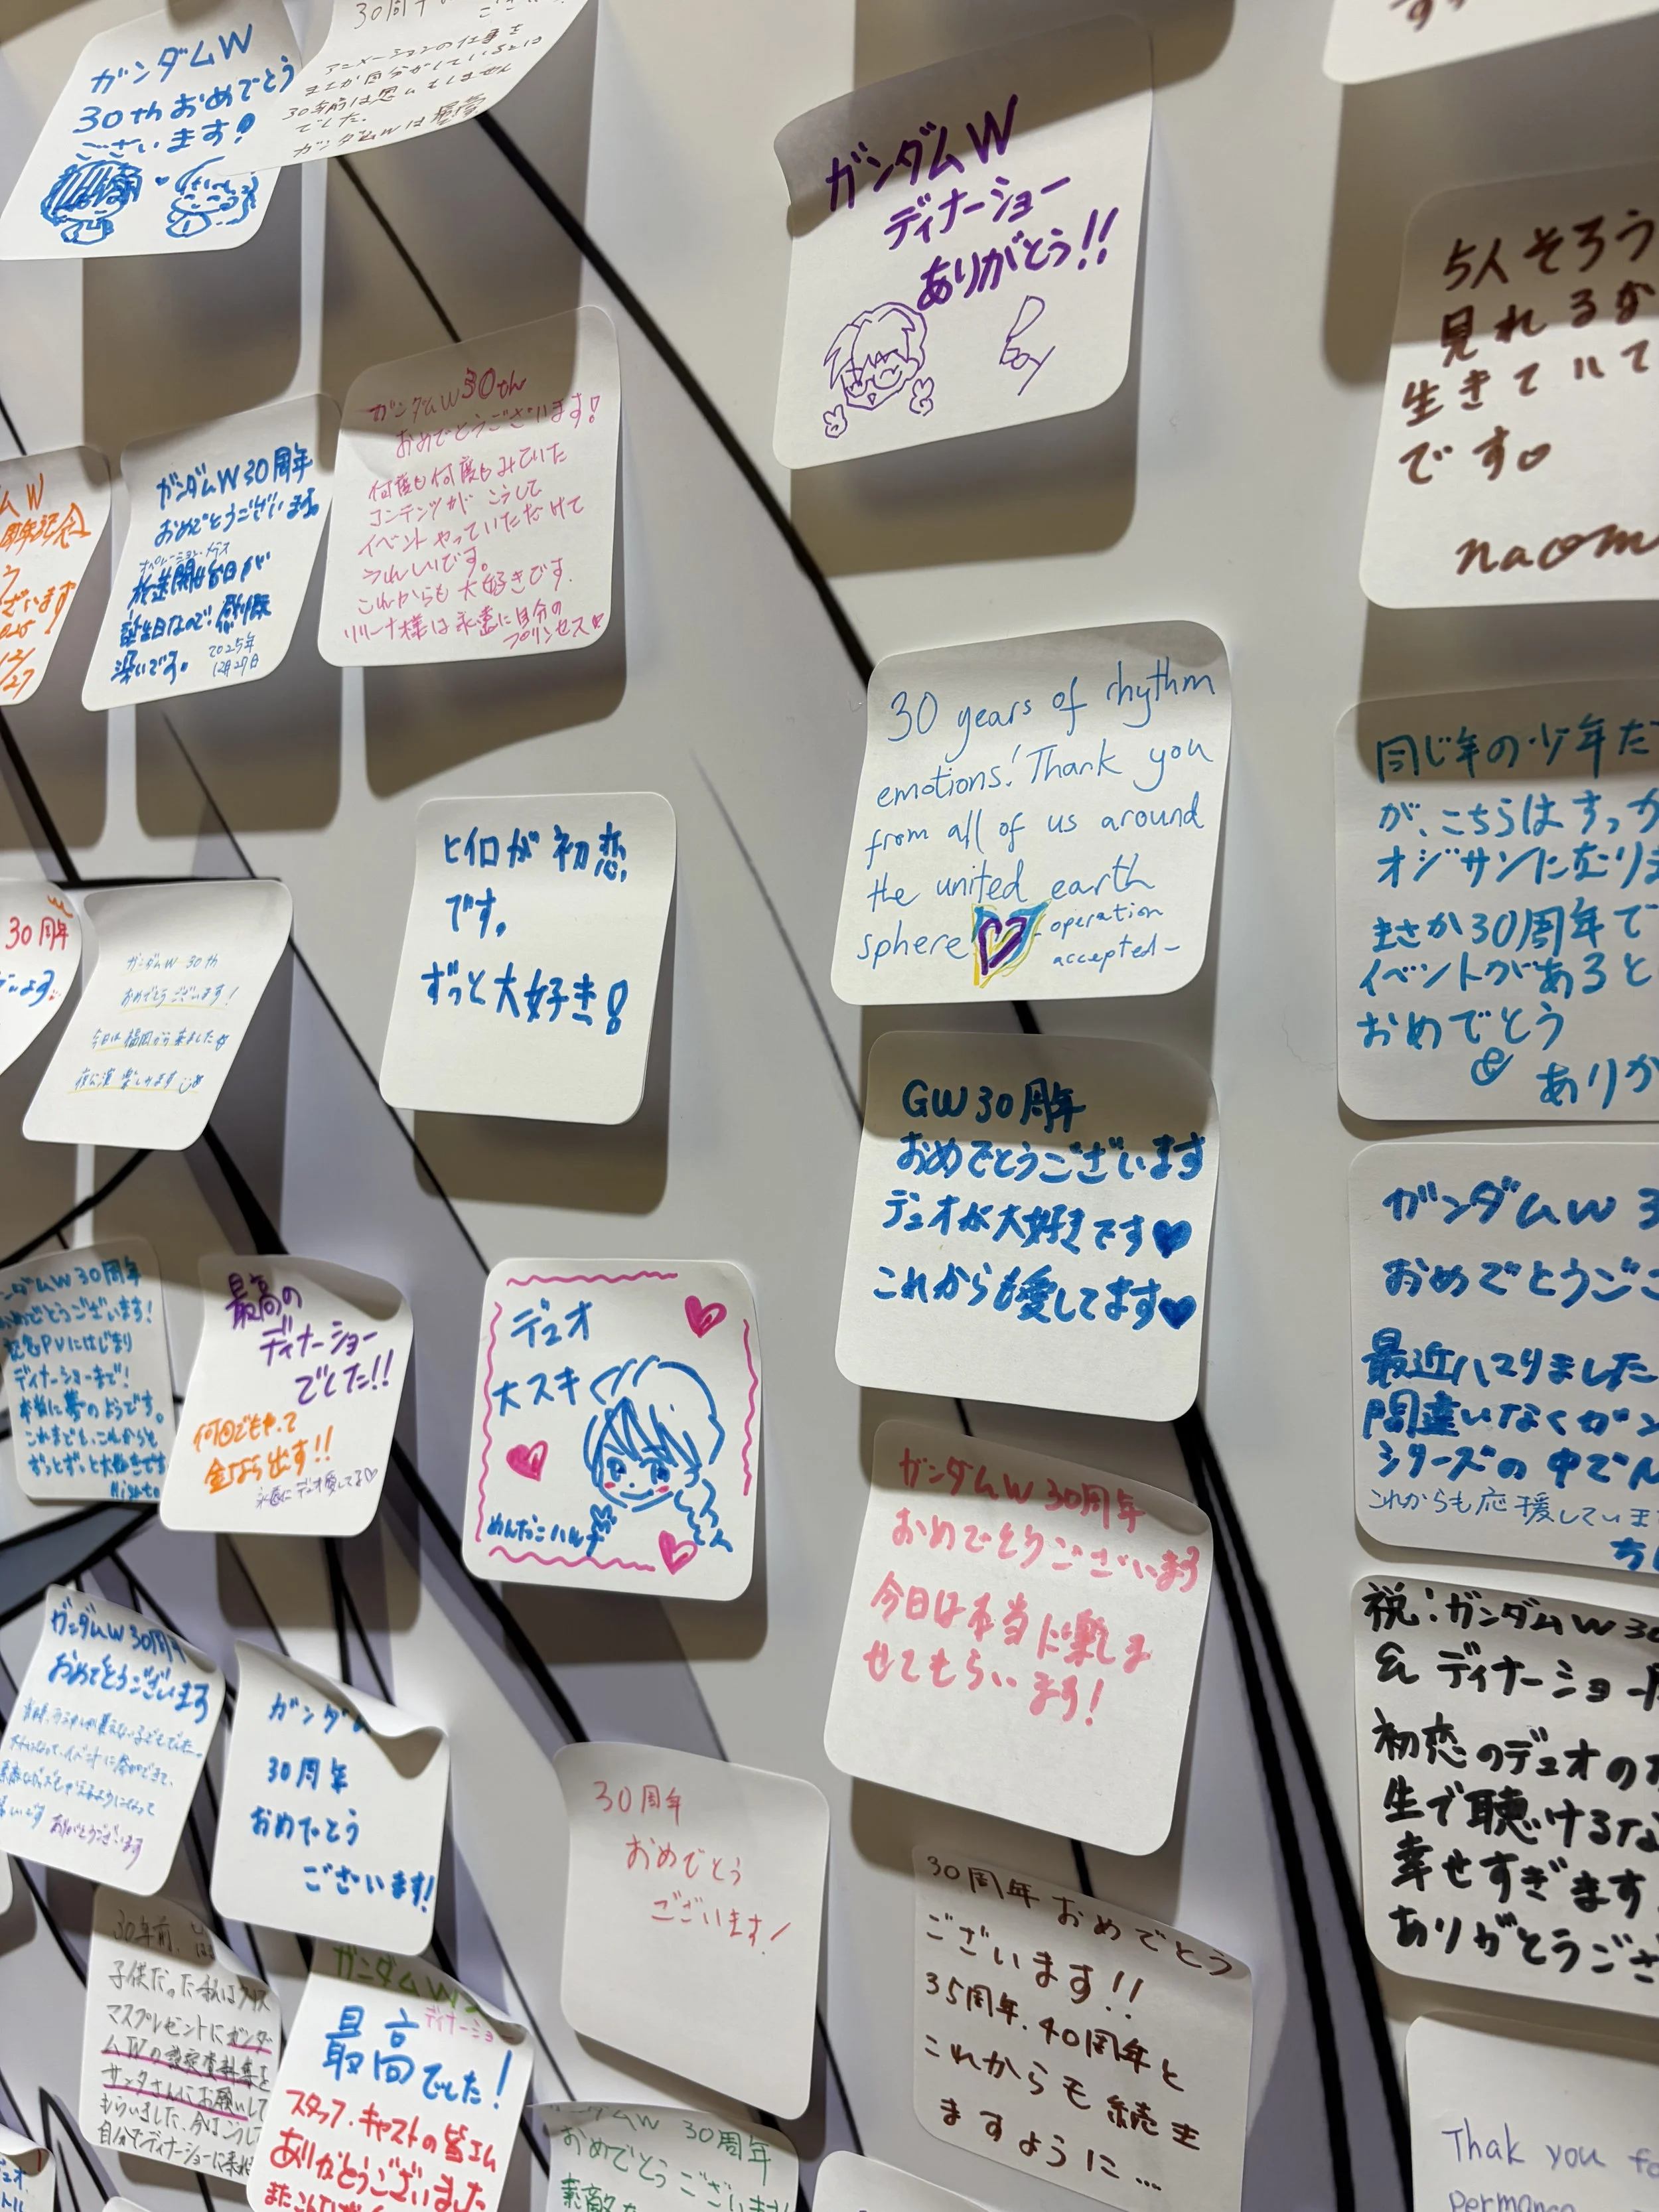 ガンダムW
30thおめでとう
ございます!
アニメーションの仕事を
まさか自分がしているとは
30年前は思いもしません
でした。
ガンダムWは最高
ガンダムW
ディナーショー
ありがとう!!
5人そろう
見れるな
生きていて
です。
naom
ムW
周年記念
ございます
2025
12/
27
ガンダムW30周年
おめでとうございます。
オペレーション・メテオ
放送開始日が
誕生日なので感慨
深いです。
2025年
12月27日
ガンダムW30th
おめでとうございます!
何度も何度もみていた
コンテンツが こうして
イベントやっていただけて
うれしいです。
これからも大好きです.
リリーナ様は永遠に自分の
プリンセス♡
30 years of rhythm
emotions! Thank you
from all of us around
the united earth
sphere
-operation
accepted-
同じ年の少年だ
が、こちらはすっか
オジサンになりま
まさか30周年で
イベントがあると
おめでとう
ありが
ヒイロが初恋
です。
ずっと大好き!
30周年
ガンダムW 30th
おめでとうございます!
今日は福岡から来ました
夜公演楽しみます
GW30周年
おめでとうございます
デュオが大好きです♥
これからも愛してます♥
ガンダムW 3
おめでとうござ
最近ハマりました
間違いなくガン
シリーズの中でN
これからも応援していま
ンダムW30周年
おめでとうございます!
記念PVにはじまり
ディナーショーまで!
本当に夢のようです。
これまでも、これからも
ずっとずっと大好きです
最高の
ディナーショー
でした!!
何回でもやって
金なら出す!!
永遠にデュオ愛してる♡
デュオ
大スキ
ガンダムW 30周年
おめでとうございます
今日は本当に楽しま
せてもらいます!
祝:ガンダムW30
& ディナーショー
初恋のデュオの
生で聴けるな
幸せすぎます
ありがとうござ
ガンダムW30周年
おめでとうございます
ありがとうございます
ガンダム
30周年
おめでとう
ございます!
30周年
おめでとう
ございます!
30周年おめでとう
ございます!!
35周年、40周年と
これからも続き
ますように…
30年前、
子供だった私はクリス
マスプレゼントにガンダ
ムWの設定資料集を
サンタさんにお願いして
もらいました、今はこうして
自分でディナーショーに来れ
ガンダムW
ディナーショー
最高でした!
スタッフ・キャストの皆さん
ありがとうございました
ンダムW 30周年
おめでとうございます
素敵な
Thak you fo
Permane